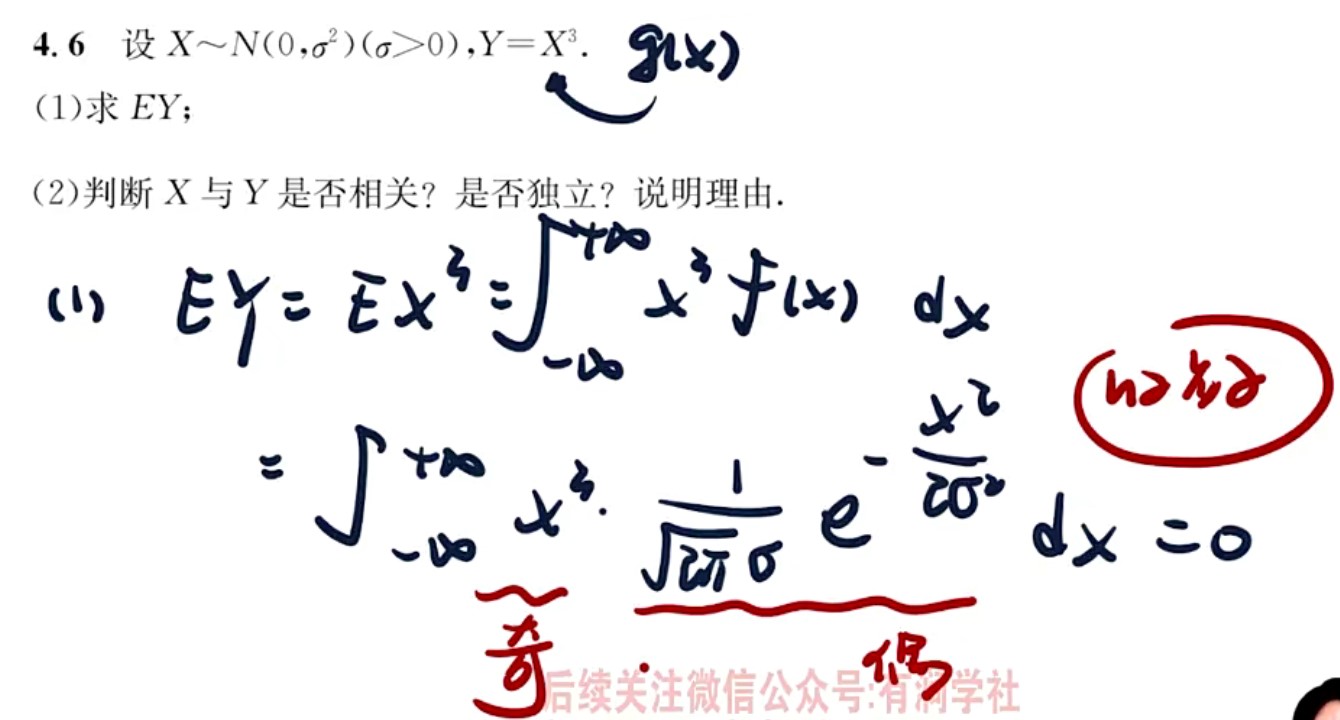 4.6 设 X~N(0,σ²)(σ>0),Y=X³. g(x)
(1)求 EY;
(2)判断 X 与 Y 是否相关？是否独立？说明理由.
(1) EY = EX³ = ∫_{-∞}^{+∞} x³ f(x) dx
= ∫_{-∞}^{+∞} x³ · \frac{1}{\sqrt{2π}σ} e^{-\frac{x²}{2σ²}} dx = 0
奇 · 偶
后续关注微信公众号:有润学社